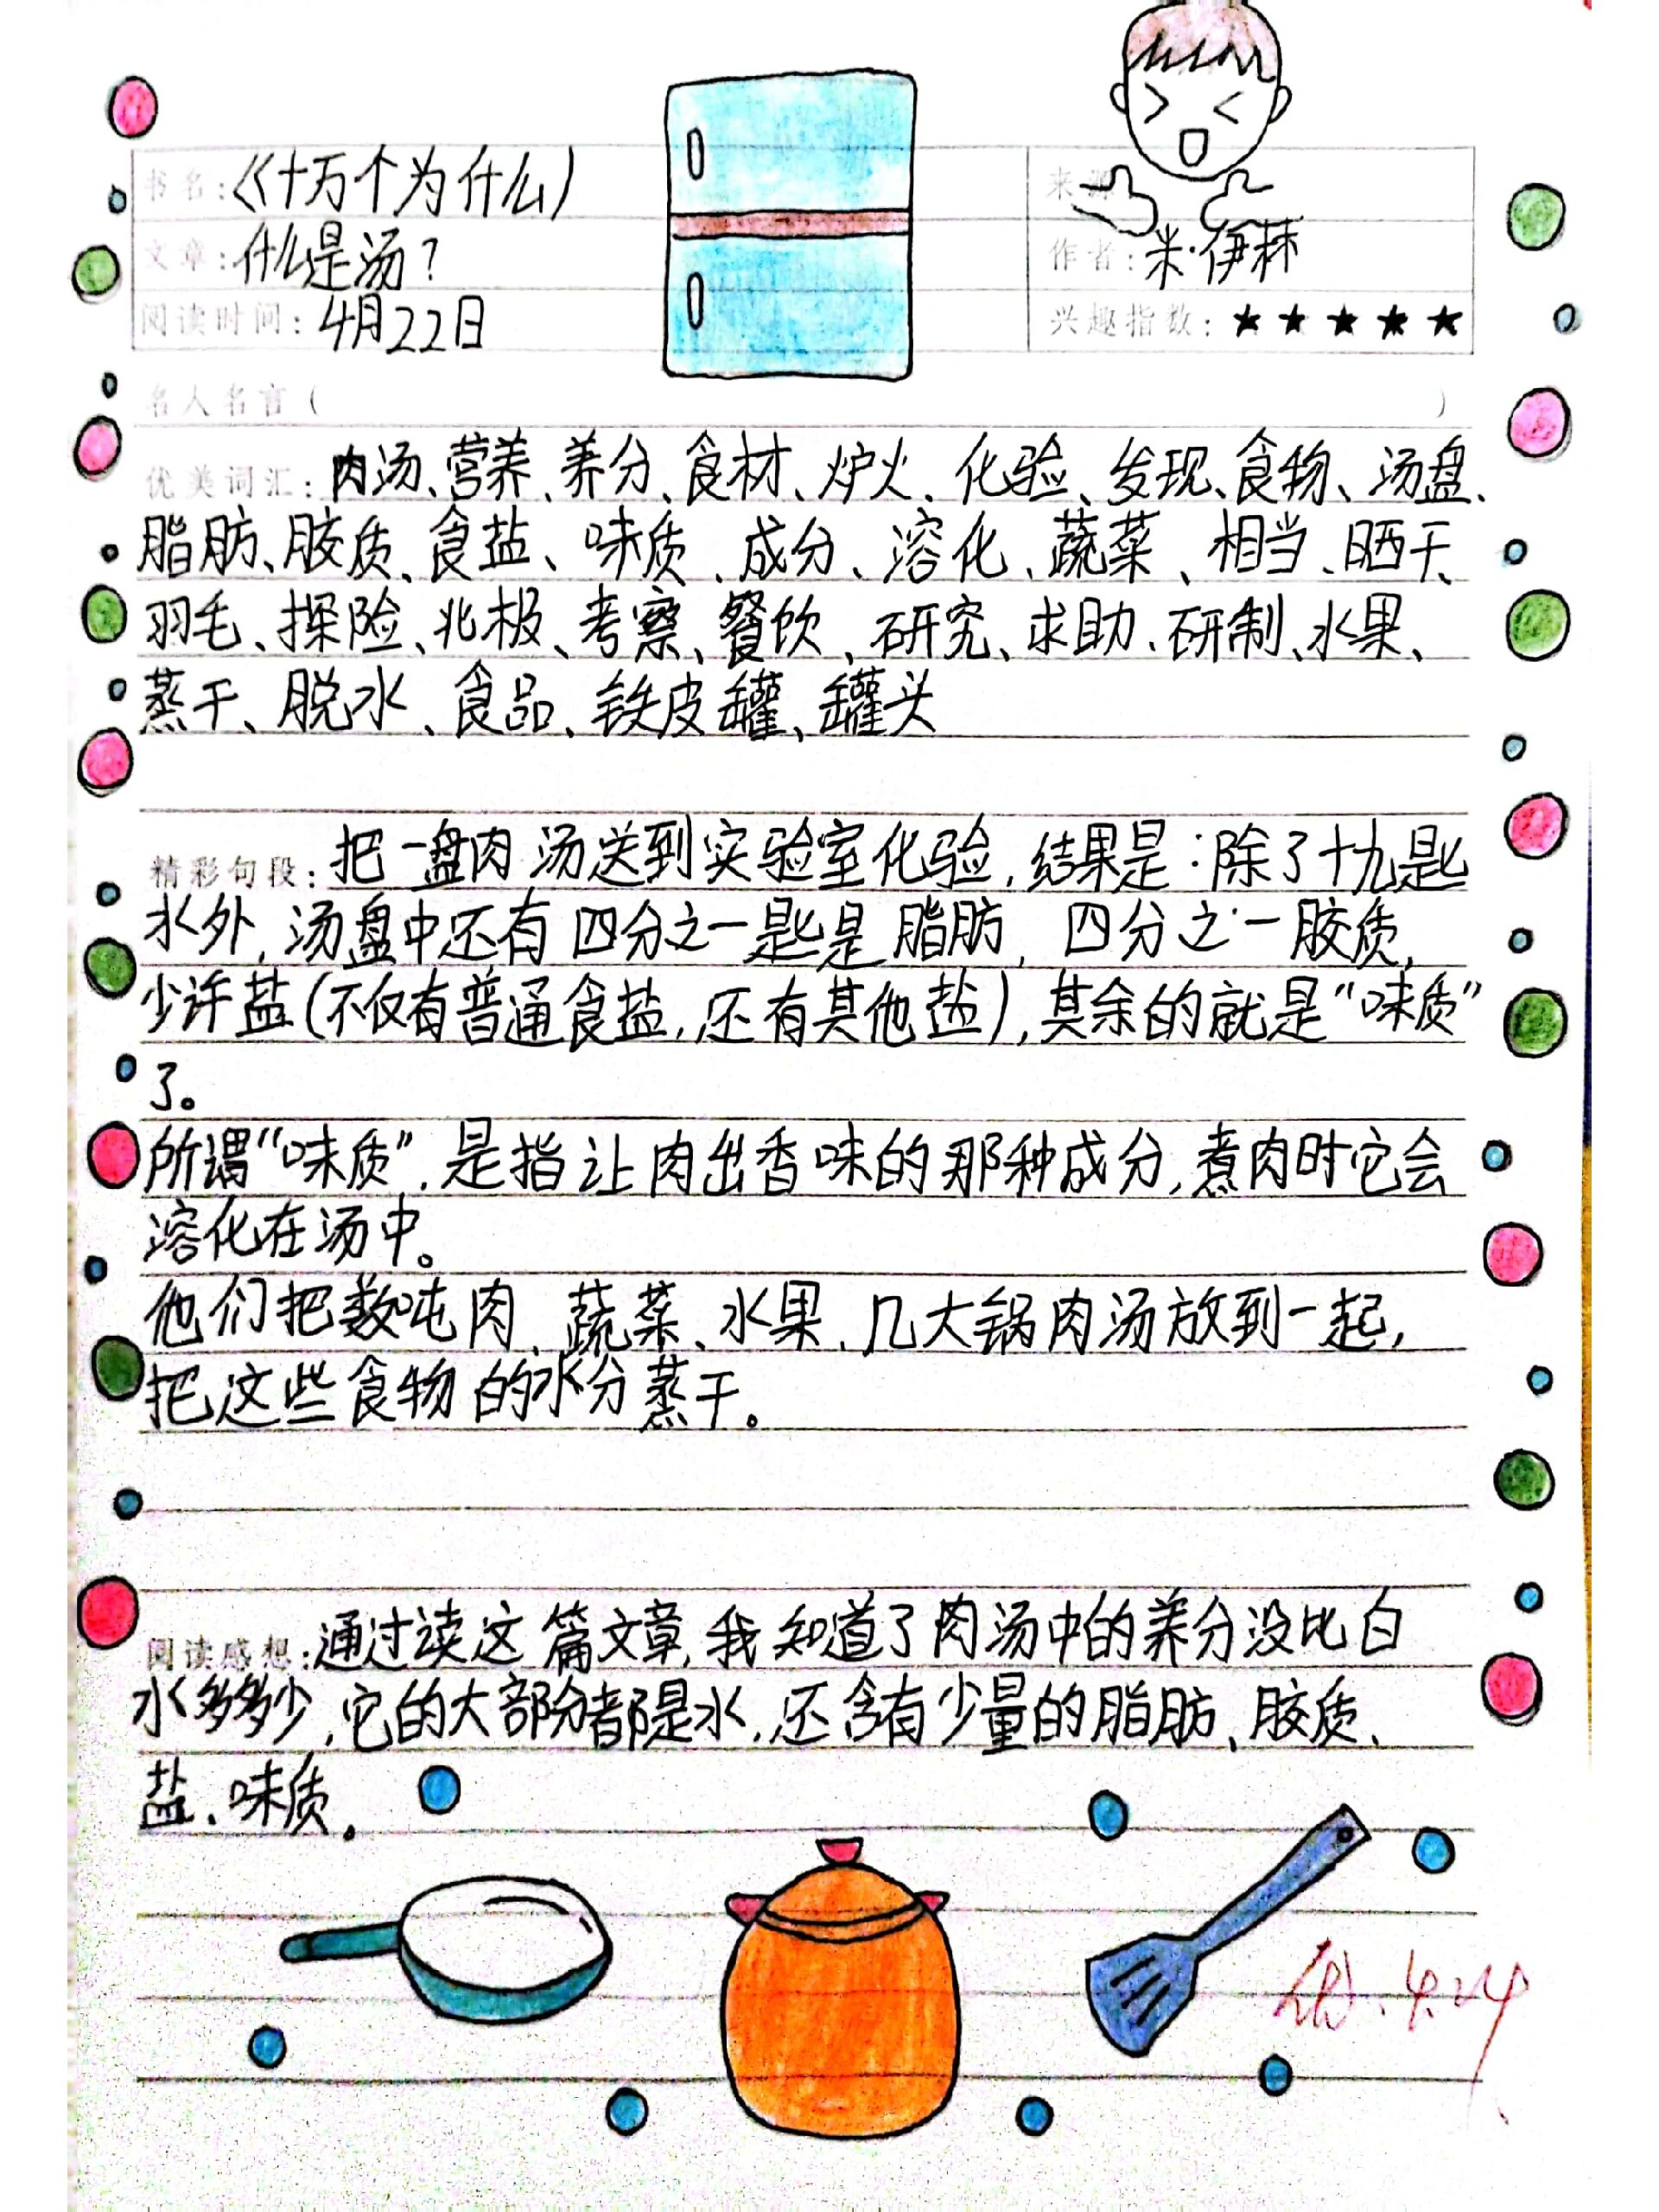 书名:《十万个为什么》
来源
文章:什么是汤?
作者:米·伊林
阅读时间:4月22日
兴趣指数:★★★★★
名人名言( )
优美词汇:肉汤、营养、养分、食材、炉火、化验、发现、食物、汤盘、
脂肪、胶质、食盐、味质、成分、溶化、蔬菜、相当、晒干、
羽毛、探险、北极、考察、餐饮、研究、求助、研制、水果、
蒸干、脱水、食品、铁皮罐、罐头
精彩句段:把一盘肉汤送到实验室化验,结果是:除了十九匙
水外,汤盘中还有四分之一匙是脂肪,四分之一胶质,
少许盐(不仅有普通食盐,还有其他盐),其余的就是“味质”
了。
所谓“味质”,是指让肉出香味的那种成分,煮肉时它会
溶化在汤中。
他们把数吨肉、蔬菜、水果、几大锅肉汤放到一起,
把这些食物的水分蒸干。
阅读感想:通过读这篇文章,我知道了肉汤中的养分没比白
水多多少,它的大部分都是水,还含有少量的脂肪、胶质、
盐、味质。
4.24